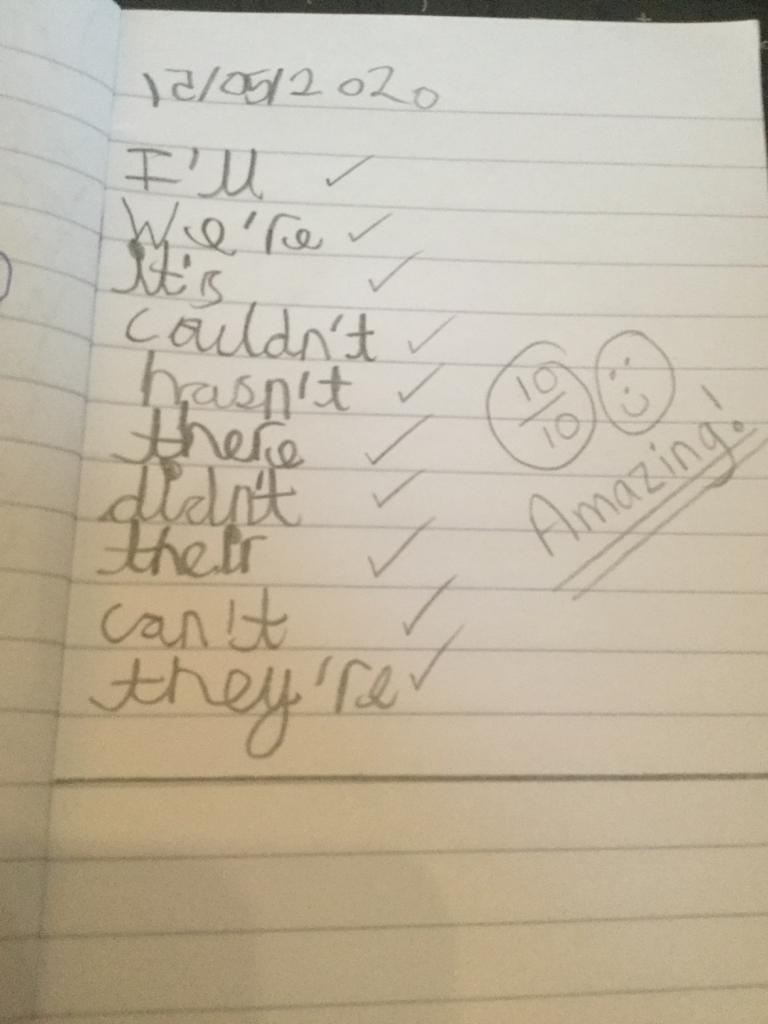 12/05/2020
I'll ✓
We're ✓
It's ✓
couldn't ✓
hasn't ✓
there ✓
didn't ✓
their ✓
can't ✓
they're ✓
10/10
Amazing!